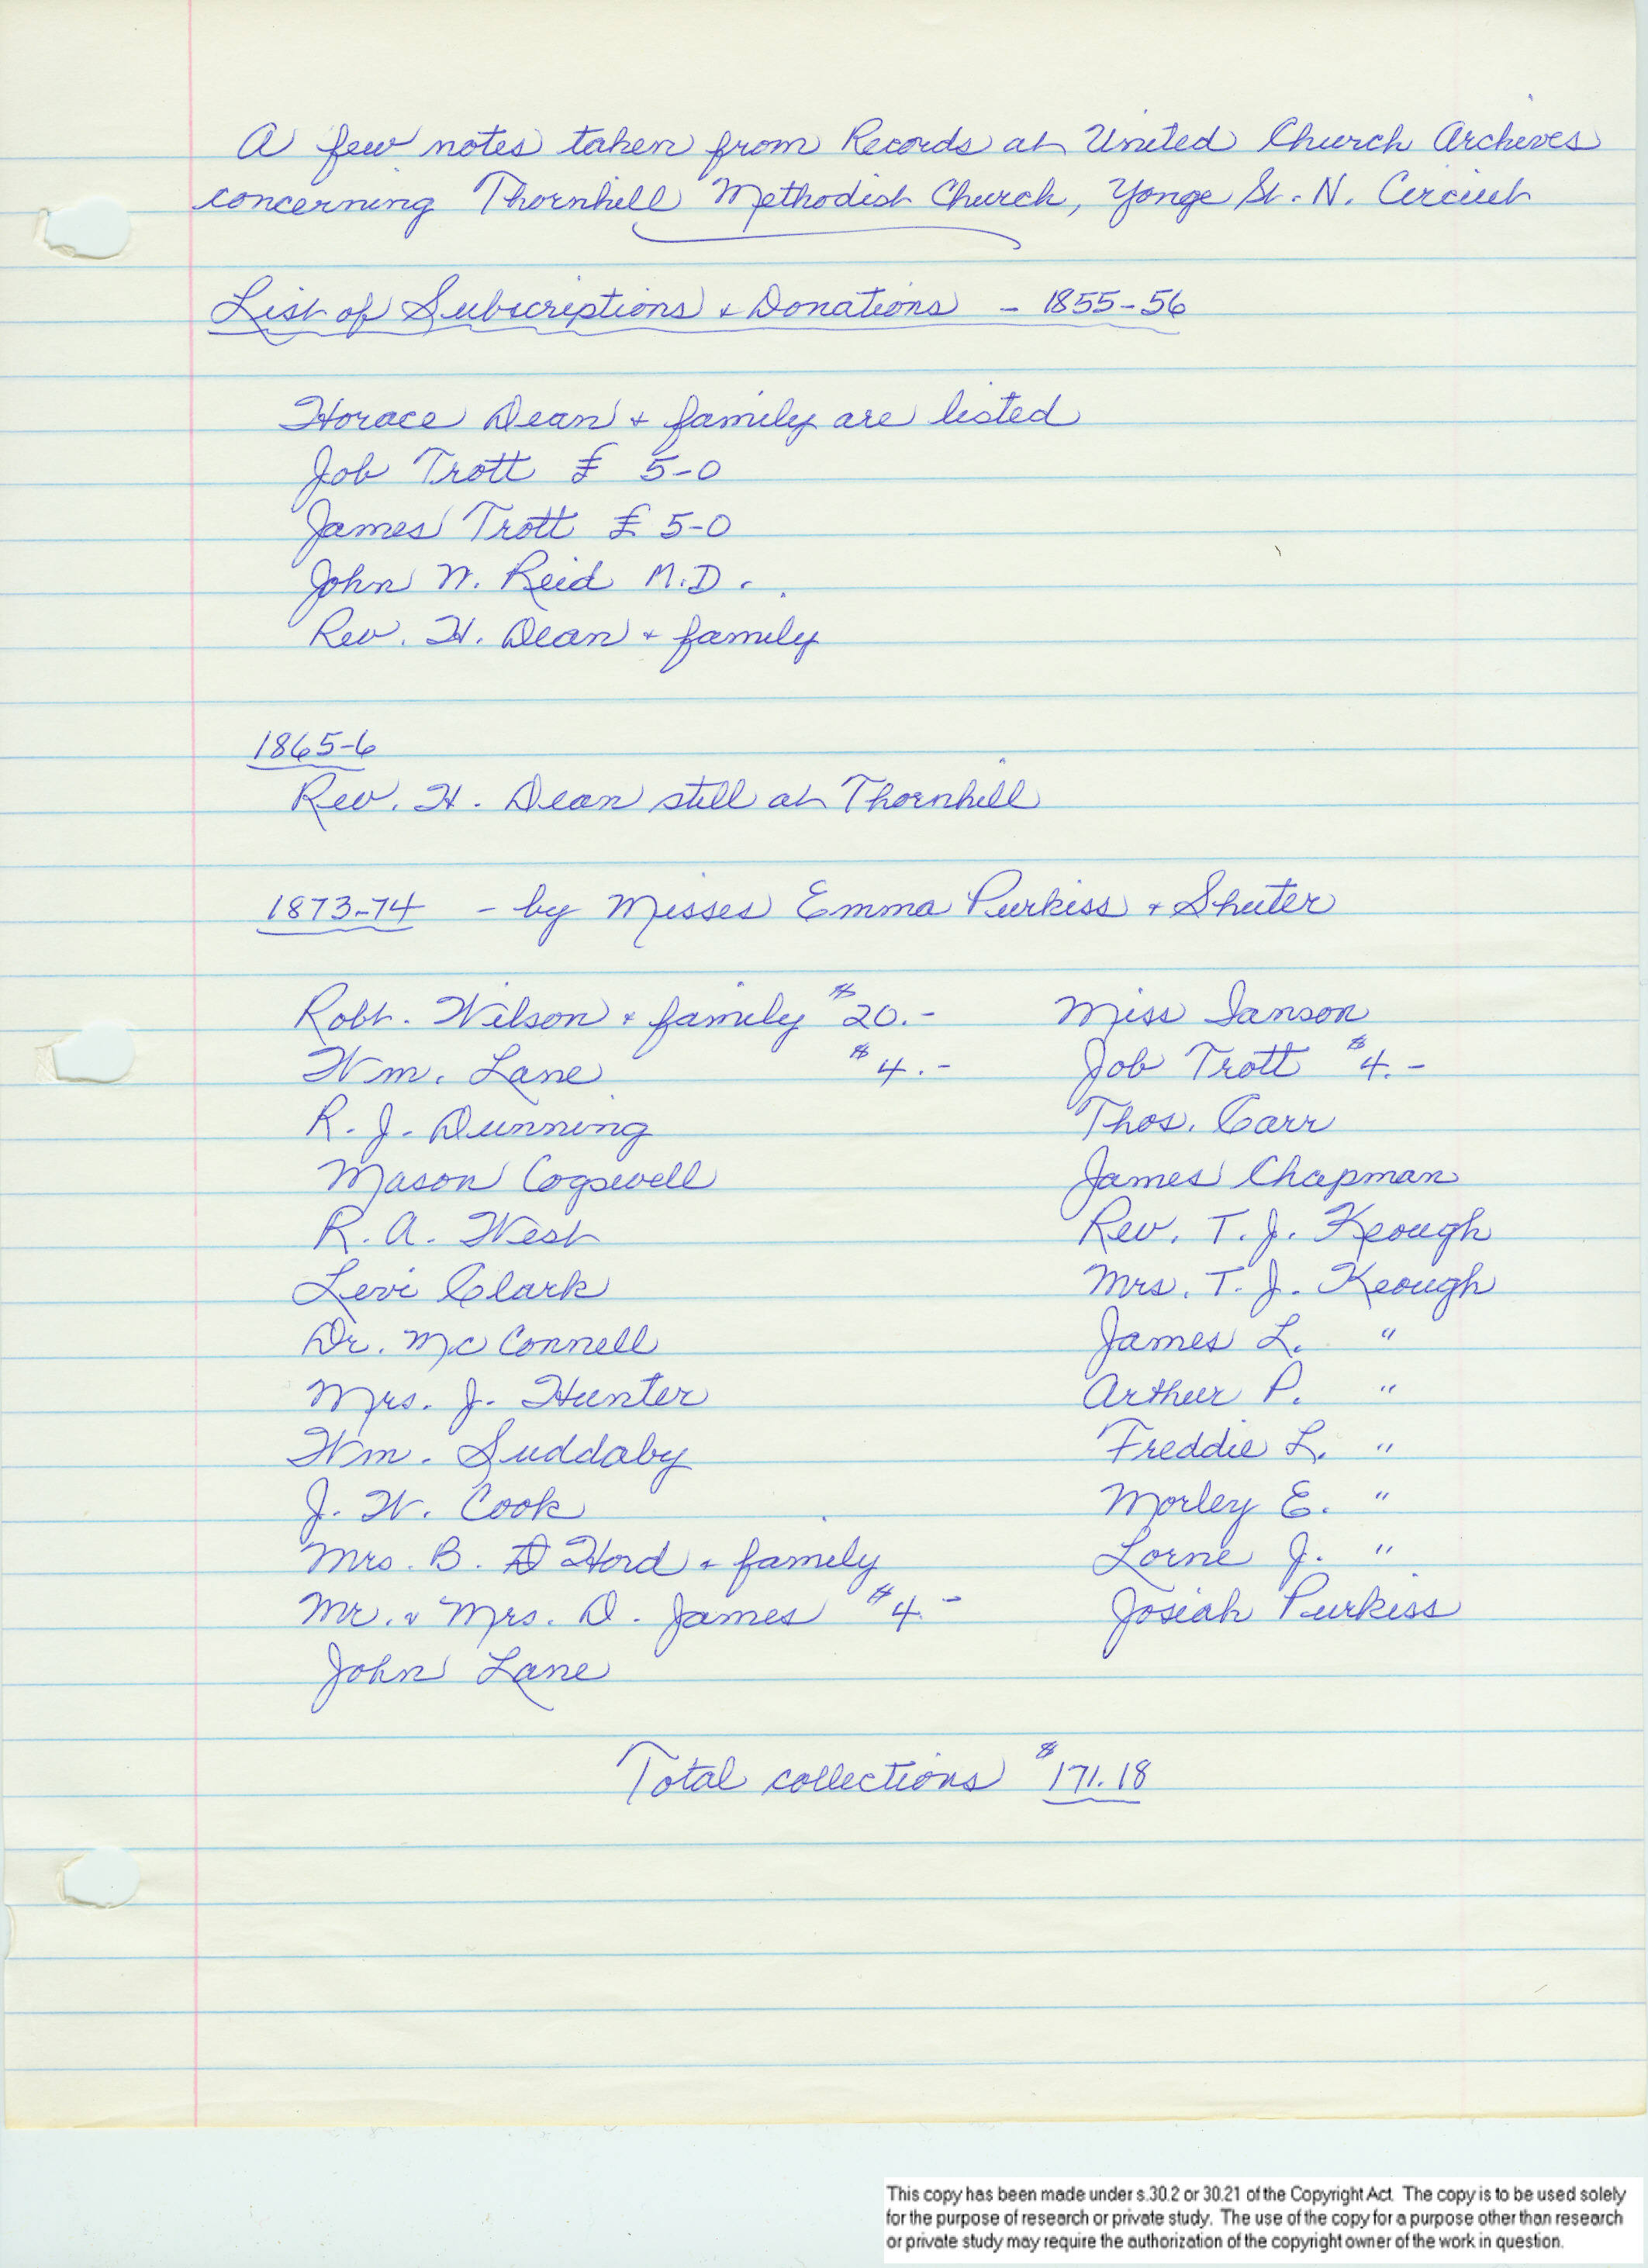 A few notes taken from Records at United Church Archives
concerning Thornhill Methodist Church, Yonge St. N. Circuit
List of Subscriptions + Donations - 1855-56
Horace Dean + family are listed
Job Trott £ 5-0
James Trott £ 5-0
John N. Reid M.D.
Rev. H. Dean + family
1865-6
Rev. H. Dean still at Thornhill
1873-74 - by Misses Emma Purkiss + Shuter
Robt. Wilson + family $20.-
Wm. Lane $4.-
R. J. Dunning
Mason Cogswell
R. A. West
Levi Clark
Dr. McConnell
Mrs. J. Hunter
Wm. Suddaby
J. W. Cook
Mrs. B. Hord + family
Mr. + Mrs. D. James $4.-
John Lane
Miss Ianson
Job Trott $4.-
Thos. Carr
James Chapman
Rev. T. J. Keough
Mrs. T. J. Keough
James L. "
Arthur P. "
Freddie L. "
Morley E. "
Lorne J. "
Josiah Purkiss
Total collections $171.18
This copy has been made under s.30.2 or 30.21 of the Copyright Act. The copy is to be used solely
for the purpose of research or private study. The use of the copy for a purpose other than research
or private study may require the authorization of the copyright owner of the work in question.